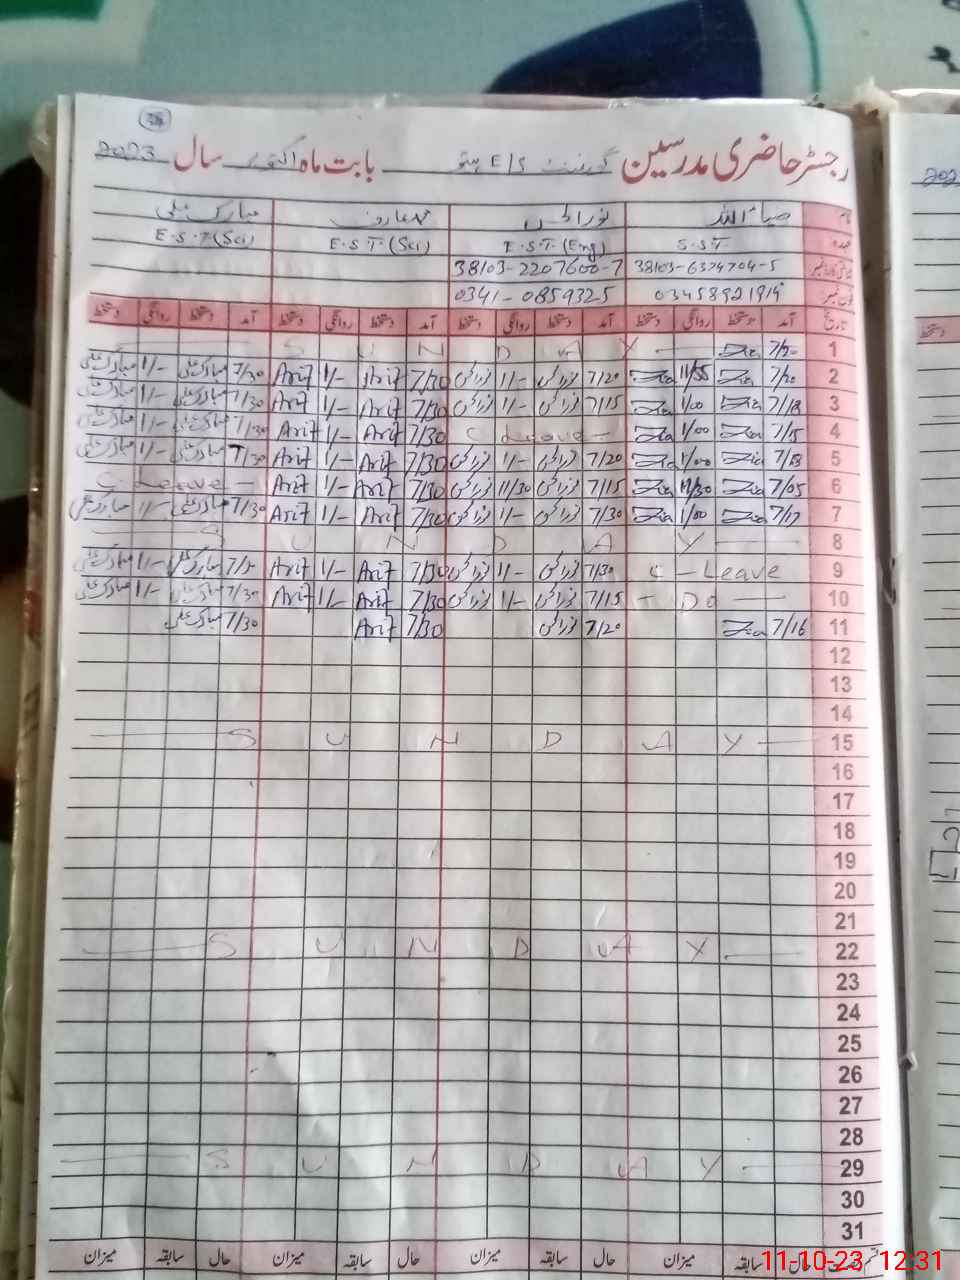 رجسٹر حاضری مدرسین گورنمنٹ E/S بابت ماہ اکتوبر سال 2023
نام ضیاء اللہ نورالحق محمد عارف مبارک علی
عہدہ S.S.T E.S.T.(Eng) E.S.T(Sci) E.S.T(Sci)
38103-6374704-5 38103-2207600-7
فون نمبر 03458921919 0341-0859325
تاریخ آمد دستخط روانگی دستخط آمد دستخط روانگی دستخط آمد دستخط روانگی دستخط آمد دستخط روانگی دستخط
1 7/20 Zia — S U N D A Y —
2 7/20 Zia 11/55 Zia 7/20 نورالحق 1/- نورالحق 7/30 Arif 1/- Arif 7/30 مبارک علی 1/- مبارک علی
3 7/18 Zia 1/00 Zia 7/15 نورالحق 1/- نورالحق 7/30 Arif 1/- Arif 7/30 مبارک علی 1/- مبارک علی
4 7/15 Zia 1/00 Zia C Leave - 7/30 Arif 1/- Arif 7/30 مبارک علی 1/- مبارک علی
5 7/18 Zia 1/00 Zia 7/20 نورالحق 1/- نورالحق 7/30 Arif 1/- Arif 7/30 مبارک علی 1/- مبارک علی
6 7/05 Zia 11/30 Zia 7/15 نورالحق 11/30 نورالحق 7/30 Arif 1/- Arif C. Leave -
7 7/17 Zia 1/00 Zia 7/30 نورالحق 1/- نورالحق 7/30 Arif 1/- Arif 7/30 مبارک علی 1/- مبارک علی
8 — S U N D A Y —
9 C - Leave 7/30 نورالحق 1/- نورالحق 7/30 Arif 1/- Arif 7/30 مبارک علی 1/- مبارک علی
10 - Do — 7/15 نورالحق 1/- نورالحق 7/30 Arif 1/- Arif 7/30 مبارک علی 1/- مبارک علی
11 7/16 Zia 7/20 نورالحق 7/30 Arif 7/30 مبارک علی
12
13
14
15 — S U N D A Y —
16
17
18
19
20
21
22 — S U N D A Y —
23
24
25
26
27
28
29 — S U N D A Y —
30
31
حال سابقہ میزان حال سابقہ میزان حال سابقہ میزان حال سابقہ میزان
11-10-23 12:31